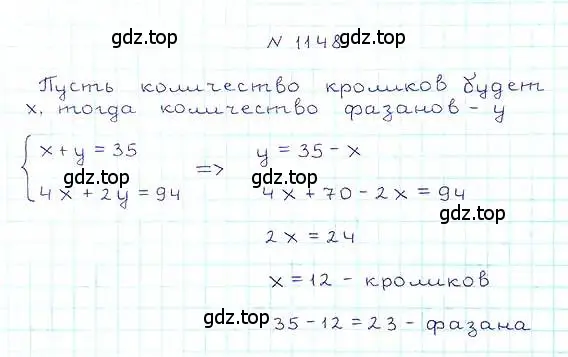 gdz.top
N 1148
gdz.top
Пусть количество кроликов будет
x, тогда количество фазанов - y
x + y = 35
4x + 2y = 94
gdz.top
=>
y = 35 - x
4x + 70 - 2x = 94
gdz.top
2x = 24
x = 12 - кроликов
35 - 12 = 23 - фазана
gdz.top